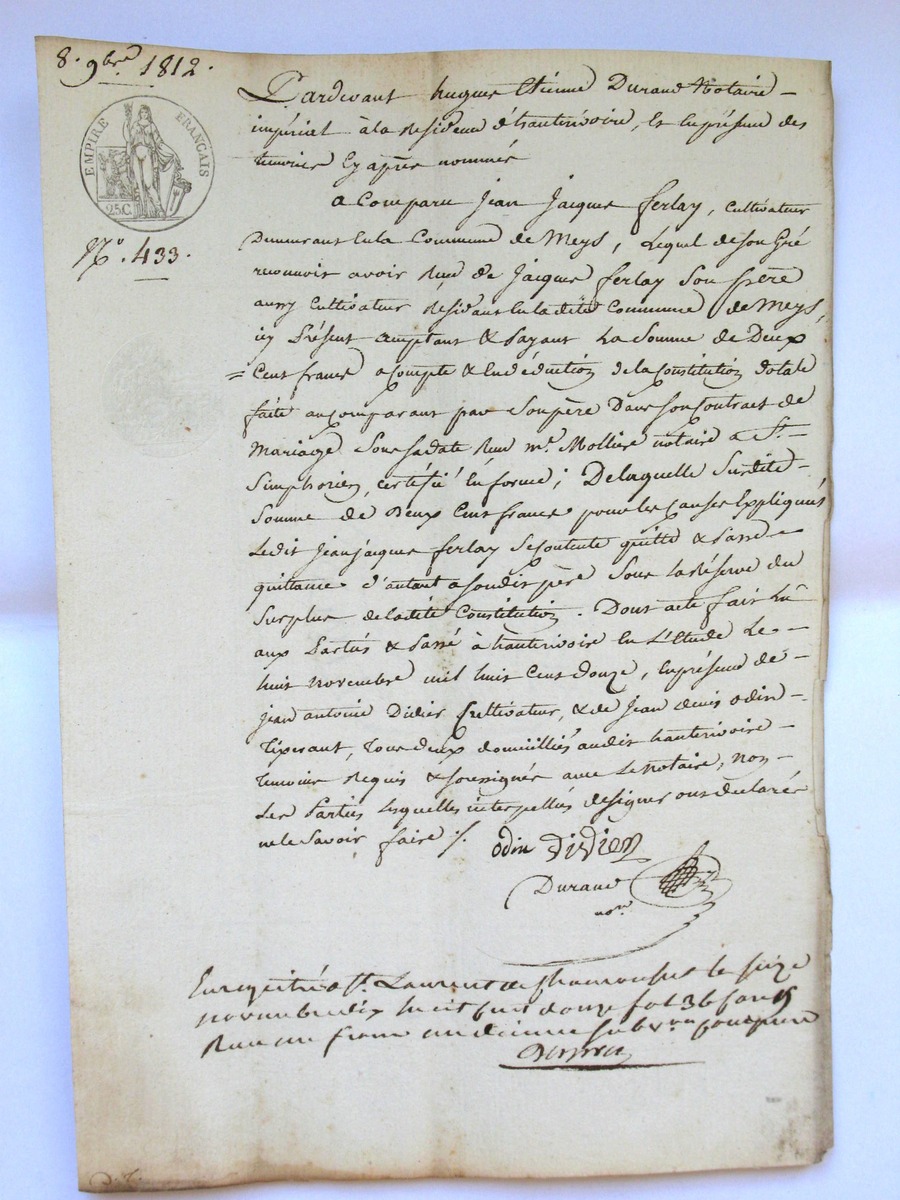 8. 9bre 1812.
EMPIRE FRANÇAIS
25C.
N° 433.
Pardevant hugues Etienne Durand Notaire
impérial à la Residence d'hauterivoire, Et En présence des
temoins Cy après nommés
a Comparu Jean Jacques ferlay, Cultivateur
Demeurant En la Commune de Meys, Lequel de son Gré
reconnoit avoir Reçu de Jacques ferlay Son père
aussy Cultivateur Residant En la dite Commune de Meys,
icy Présent comptant & Payant La Somme de Deux
Cent francs a Compte & En déduction de la Constitution dotale
faite au Comparant par Son père Dans Son Contrat de
Mariage Sous Sa date Reçu me. Mollière notaire a St.
Simphorien, certifié En forme; De laquelle Susdite
Somme de Deux Cent francs pour les Causes Expliquées
Ledit Jean jacques ferlay Se Contente quitte & Passe
quittance d'autant a Son dit père Sous la Réserve du
Surplus de la dite Constitution. Dont acte fait Lu
aux Parties & Passé à hauterivoire En L'Etude Le
huit novembre mil huit Cent Douze, En présence de
jean antoine Didier Cultivateur, & de Jean denis odin
Tixerant, Tous deux domiciliés audit hauterivoire
temoins Requis & Soussignés avec Le Notaire, non
Les Parties Lesquelles interpellées de signer ont declaré
ne le Savoir faire ./.
odin Didier
Durand
nore
Enregistré a St. Laurent de Chamousset le seize
novembre dix huit cent douze fol 36
Reçu un franc un dixième